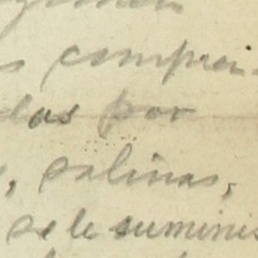 comprei-
das por
, salinas,
se le suminis